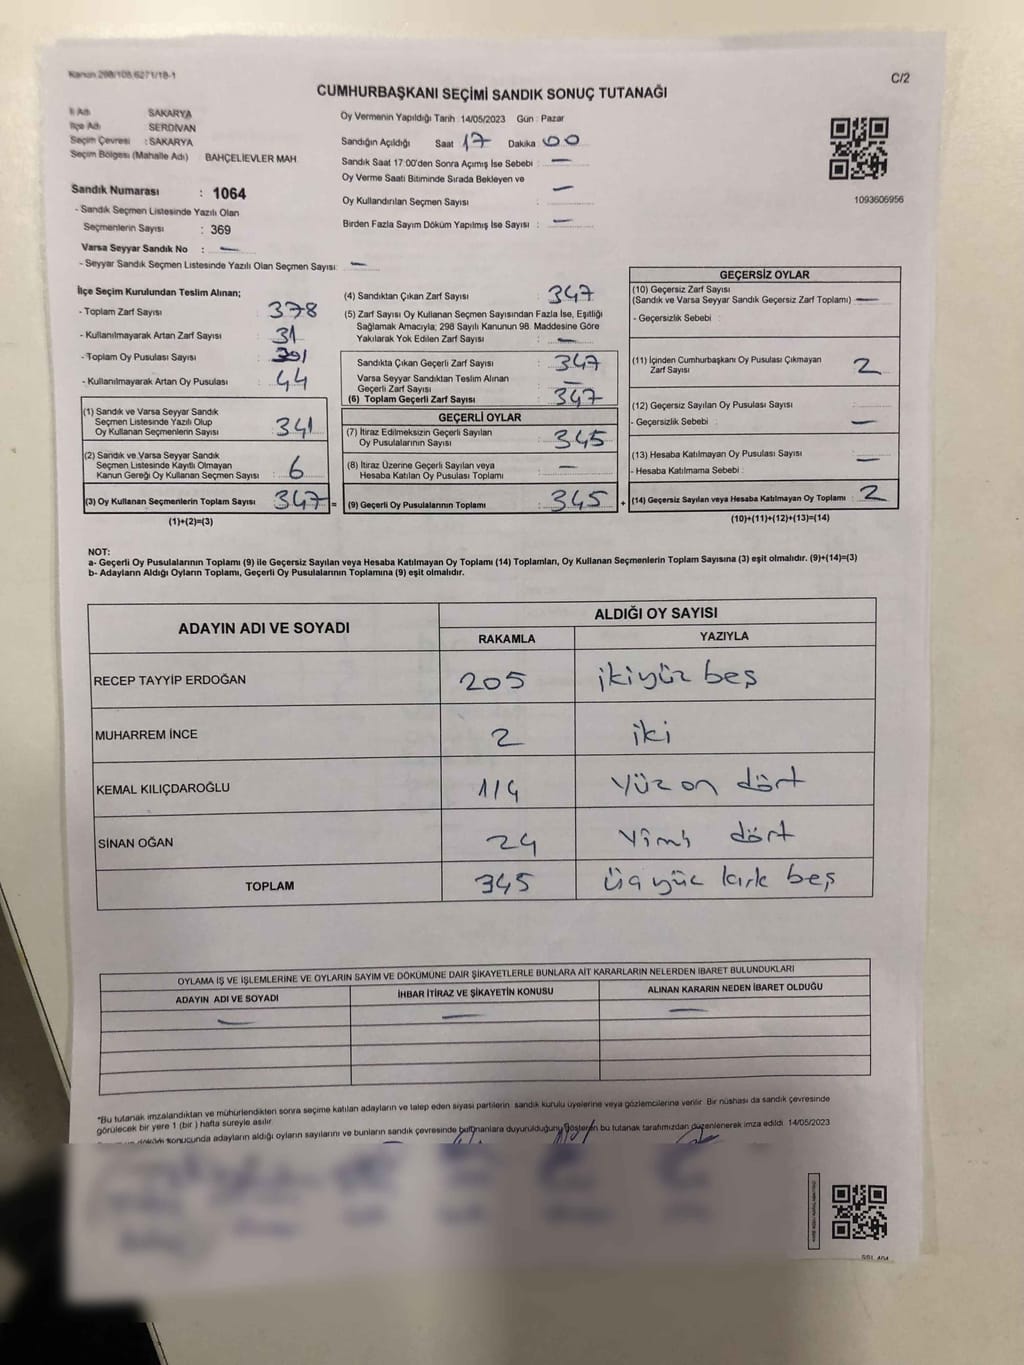 Kanun 298/108,6271/18-1
C/2
CUMHURBAŞKANI SEÇİMİ SANDIK SONUÇ TUTANAĞI
İl Adı SAKARYA
İlçe Adı SERDİVAN
Seçim Çevresi : SAKARYA
Seçim Bölgesi (Mahalle Adı) BAHÇELİEVLER MAH
Sandık Numarası : 1064
- Sandık Seçmen Listesinde Yazılı Olan
Seçmenlerin Sayısı : 369
Varsa Seyyar Sandık No : —
- Seyyar Sandık Seçmen Listesinde Yazılı Olan Seçmen Sayısı: —
Oy Vermenin Yapıldığı Tarih :14/05/2023 Gün : Pazar
Sandığın Açıldığı Saat 17 Dakika 00
Sandık Saat 17:00'den Sonra Açımış İse Sebebi : —
Oy Verme Saati Bitiminde Sırada Bekleyen ve
Oy Kullandırılan Seçmen Sayısı : —
Birden Fazla Sayım Döküm Yapılmış İse Sayısı : —
1093606956
İlçe Seçim Kurulundan Teslim Alınan;
- Toplam Zarf Sayısı : 378
- Kullanılmayarak Artan Zarf Sayısı : 31
- Toplam Oy Pusulası Sayısı : 391
- Kullanılmayarak Artan Oy Pusulası : 44
(1) Sandık ve Varsa Seyyar Sandık
Seçmen Listesinde Yazılı Olup
Oy Kullanan Seçmenlerin Sayısı : 341
(2) Sandık ve Varsa Seyyar Sandık
Seçmen Listesinde Kayıtlı Olmayan
Kanun Gereği Oy Kullanan Seçmen Sayısı : 6
(3) Oy Kullanan Seçmenlerin Toplam Sayısı : 347 =
(1)+(2)=(3)
(4) Sandıktan Çıkan Zarf Sayısı : 347
(5) Zarf Sayısı Oy Kullanan Seçmen Sayısından Fazla İse, Eşitliği
Sağlamak Amacıyla; 298 Sayılı Kanunun 98. Maddesine Göre
Yakılarak Yok Edilen Zarf Sayısı : —
Sandıkta Çıkan Geçerli Zarf Sayısı : 347
Varsa Seyyar Sandıktan Teslim Alınan
Geçerli Zarf Sayısı : —
(6) Toplam Geçerli Zarf Sayısı : 347
GEÇERLİ OYLAR
(7) İtiraz Edilmeksizin Geçerli Sayılan
Oy Pusulalarının Sayısı : 345
(8) İtiraz Üzerine Geçerli Sayılan veya
Hesaba Katılan Oy Pusulası Toplamı : —
(9) Geçerli Oy Pusulalarının Toplamı : 345 +
GEÇERSİZ OYLAR
(10) Geçersiz Zarf Sayısı
(Sandık ve Varsa Seyyar Sandık Geçersiz Zarf Toplamı) —
- Geçersizlik Sebebi :
(11) İçinden Cumhurbaşkanı Oy Pusulası Çıkmayan
Zarf Sayısı : 2
(12) Geçersiz Sayılan Oy Pusulası Sayısı :
- Geçersizlik Sebebi : —
(13) Hesaba Katılmayan Oy Pusulası Sayısı : —
- Hesaba Katılmama Sebebi :
(14) Geçersiz Sayılan veya Hesaba Katılmayan Oy Toplamı : 2
(10)+(11)+(12)+(13)=(14)
NOT:
a- Geçerli Oy Pusulalarının Toplamı (9) ile Geçersiz Sayılan veya Hesaba Katılmayan Oy Toplamı (14) Toplamları, Oy Kullanan Seçmenlerin Toplam Sayısına (3) eşit olmalıdır. (9)+(14)=(3)
b- Adayların Aldığı Oyların Toplamı, Geçerli Oy Pusulalarının Toplamına (9) eşit olmalıdır.
ADAYIN ADI VE SOYADI ALDIĞI OY SAYISI
RAKAMLA YAZIYLA
RECEP TAYYİP ERDOĞAN 205 ikiyüz beş
MUHARREM İNCE 2 iki
KEMAL KILIÇDAROĞLU 114 Yüz on dört
SİNAN OĞAN 24 Yirmi dört
TOPLAM 345 üçyüz kırk beş
OYLAMA İŞ VE İŞLEMLERİNE VE OYLARIN SAYIM VE DÖKÜMÜNE DAİR ŞİKAYETLERLE BUNLARA AİT KARARLARIN NELERDEN İBARET BULUNDUKLARI
ADAYIN ADI VE SOYADI İHBAR İTİRAZ VE ŞİKAYETİN KONUSU ALINAN KARARIN NEDEN İBARET OLDUĞU
— — —
*Bu tutanak imzalandıktan ve mühürlendikten sonra seçime katılan adayların ve talep eden siyasi partilerin sandık kurulu üyelerine veya gözlemcilerine verilir. Bir nüshası da sandık çevresinde
görülecek bir yere 1 (bir ) hafta süreyle asılır.
sonucunda adayların aldığı oyların sayılarını ve bunların sandık çevresinde bulunanlara duyurulduğunu gösteren bu tutanak tarafımızdan düzenlenerek imza edildi. 14/05/2023